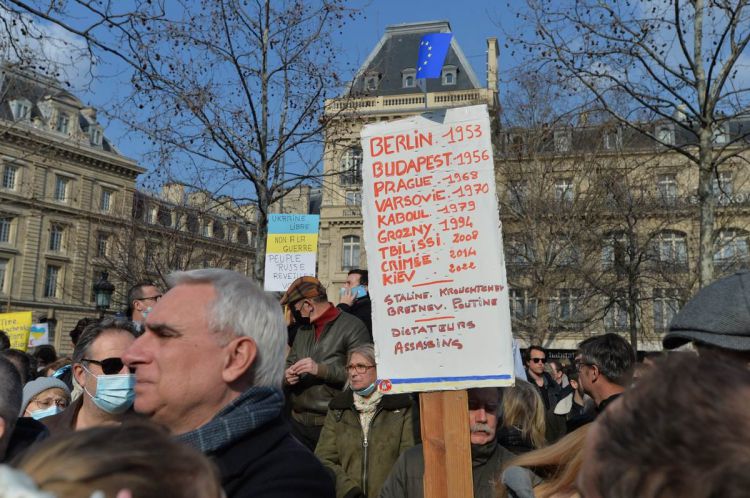 BERLIN 1953
BUDAPEST 1956
PRAGUE 1968
VARSOVIE 1970
KABOUL 1979
GROZNY 1994
TBILISSI 2008
CRIMÉE 2014
KIEV 2022
STALINE. KROUCHTCHEV
BREJNEV. POUTINE
DICTATEURS
ASSASSINS
UKRAINE
LIBRE
NON A LA
GUERRE
PEUPLE
RUSSE
habitat